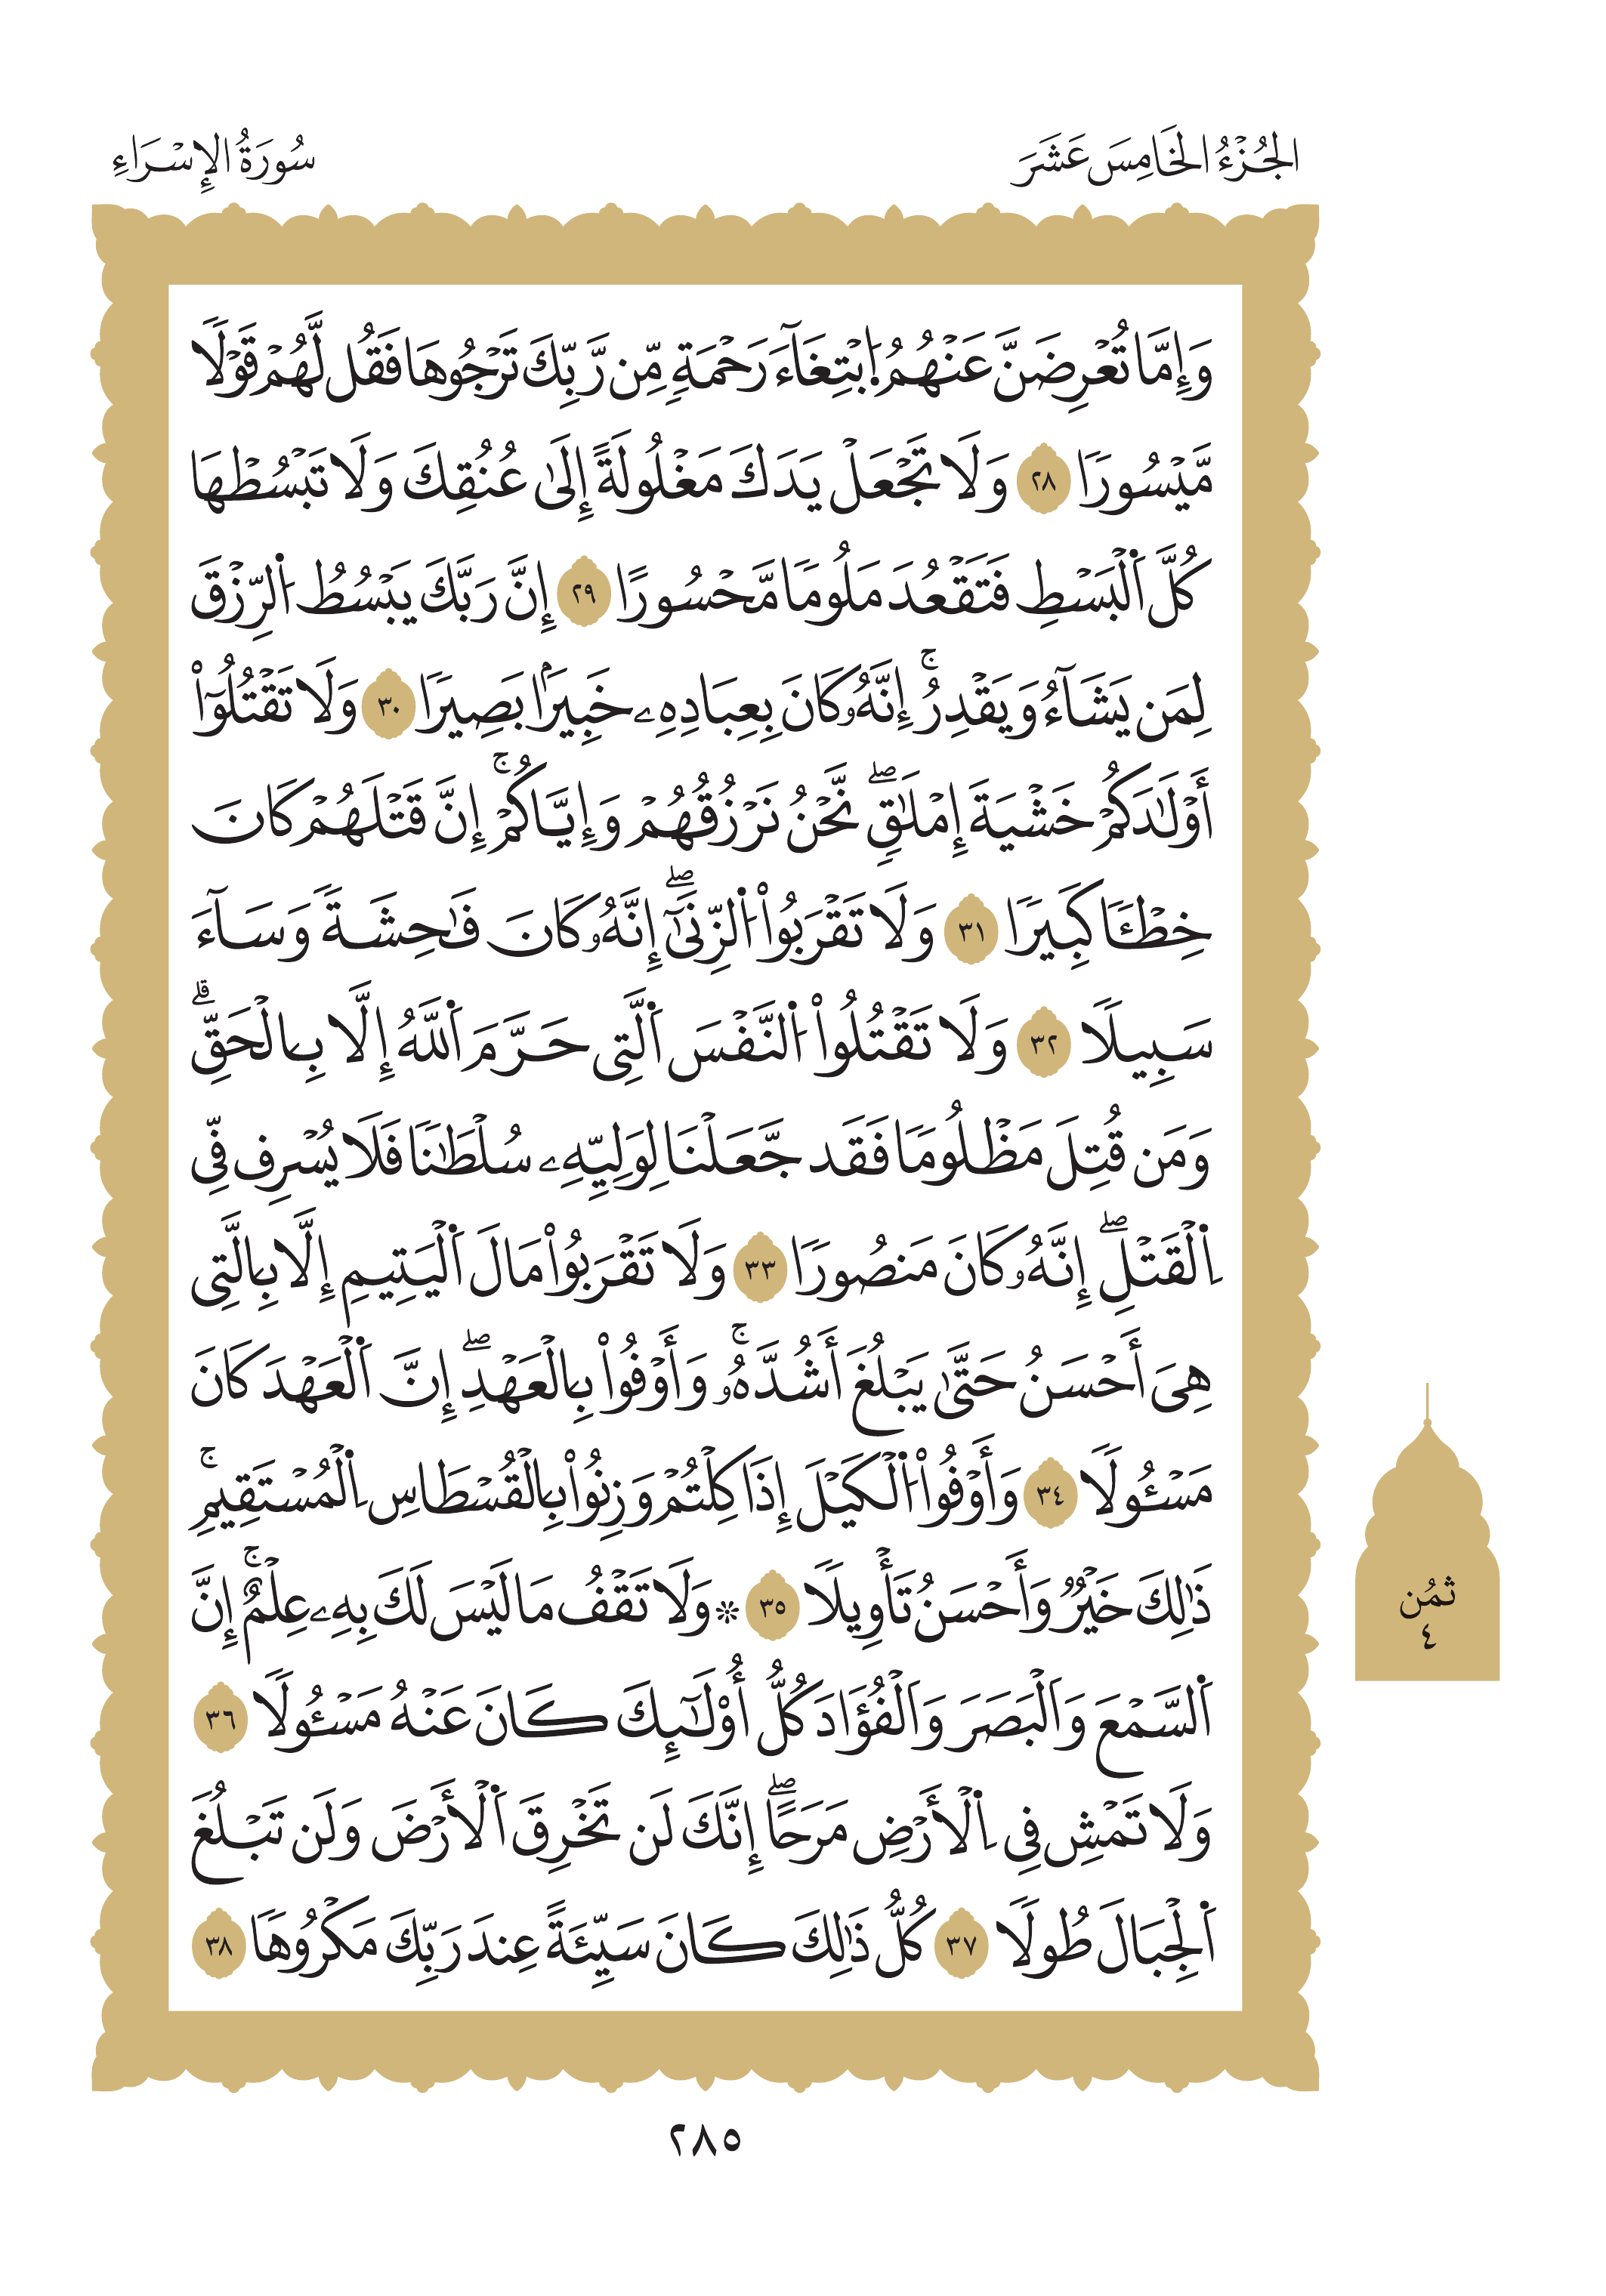 الجُزْءُ الخَامِسَ عَشَرَ
سُورَةُ الإِسْرَاءِ
وَإِمَّا تُعْرِضَنَّ عَنْهُمُ اُ۪بْتِغَآءَ رَحْمَةٖ مِّن رَّبِّكَ تَرْجُوهَا فَقُل لَّهُمْ قَوْلٗا
مَّيْسُورٗا ٢٨ وَلَا تَجْعَلْ يَدَكَ مَغْلُولَةً إِلَىٰ عُنُقِكَ وَلَا تَبْسُطْهَا
كُلَّ اَ۬لْبَسْطِ فَتَقْعُدَ مَلُومٗا مَّحْسُورًا ٢٩ إِنَّ رَبَّكَ يَبْسُطُ اُ۬لرِّزْقَ
لِمَن يَشَآءُ وَيَقْدِرُۚ إِنَّهُۥ كَانَ بِعِبَادِهِۦ خَبِيرَۢا بَصِيرٗا ٣٠ وَلَا تَقْتُلُوٓاْ
أَوْلَٰدَكُمْ خَشْيَةَ إِمْلَٰقٖۖ نَّحْنُ نَرْزُقُهُمْ وَإِيَّاكُمْۚ إِنَّ قَتْلَهُمْ كَانَ
خِطْـٔٗا كَبِيرٗا ٣١ وَلَا تَقْرَبُواْ اُ۬لزِّنَىٰٓۖ إِنَّهُۥ كَانَ فَٰحِشَةٗ وَسَآءَ
سَبِيلٗا ٣٢ وَلَا تَقْتُلُواْ اُ۬لنَّفْسَ اَ۬لَّتِي حَرَّمَ اَ۬للَّهُ إِلَّا بِالْحَقِّۗ
وَمَن قُتِلَ مَظْلُومٗا فَقَد جَّعَلْنَا لِوَلِيِّهِۦ سُلْطَٰنٗا فَلَا يُسْرِف فِّي
اِ۬لْقَتْلِۖ إِنَّهُۥ كَانَ مَنصُورٗا ٣٣ وَلَا تَقْرَبُواْ مَالَ اَ۬لْيَتِيمِ إِلَّا بِالَّتِي
هِيَ أَحْسَنُ حَتَّىٰ يَبْلُغَ أَشُدَّهُۥۚ وَأَوْفُواْ بِالْعَهْدِۖ إِنَّ اَ۬لْعَهْدَ كَانَ
مَسْـُٔولٗا ٣٤ وَأَوْفُواْ اُ۬لْكَيْلَ إِذَا كِلْتُمْ وَزِنُواْ بِالْقُسْطَاسِ اِ۬لْمُسْتَقِيمِۚ
ذَٰلِكَ خَيْرٞ وَأَحْسَنُ تَأْوِيلٗا ٣٥ ۞ وَلَا تَقْفُ مَا لَيْسَ لَكَ بِهِۦ عِلْمٌۚ إِنَّ
اَ۬لسَّمْعَ وَالْبَصَرَ وَالْفُؤَادَ كُلُّ أُوْلَٰٓئِكَ كَانَ عَنْهُ مَسْـُٔولٗا ٣٦
وَلَا تَمْشِ فِي اِ۬لْأَرْضِ مَرَحًاۖ إِنَّكَ لَن تَخْرِقَ اَ۬لْأَرْضَ وَلَن تَبْلُغَ
اَ۬لْجِبَالَ طُولٗا ٣٧ كُلُّ ذَٰلِكَ كَانَ سَيِّئَةً عِندَ رَبِّكَ مَكْرُوهٗا ٣٨
ثُمُن
٤
٢٨٥